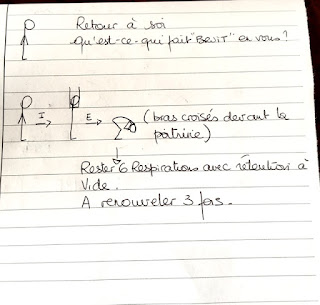 Retour à soi
Qu'est-ce-qui fait "BRUIT" en vous?
I E (bras croisés devant la
poitrine)
Rester 6 Respirations avec rétention à
Vide.
A renouveler 3 fois.